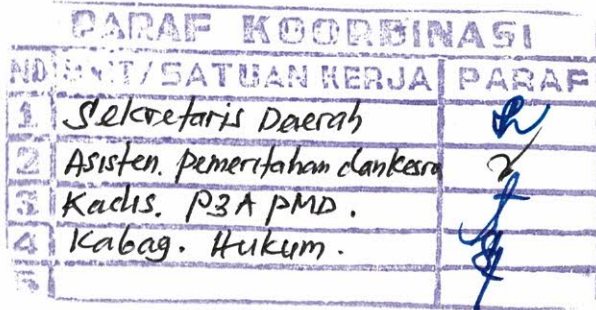 PARAF KOORDINASI
NO UNIT/SATUAN KERJA PARAF
1 Sekretaris Daerah
2 Asisten. pemerintahan dan kesra
3 Kadis. P3A PMD.
4 Kabag. Hukum.
5